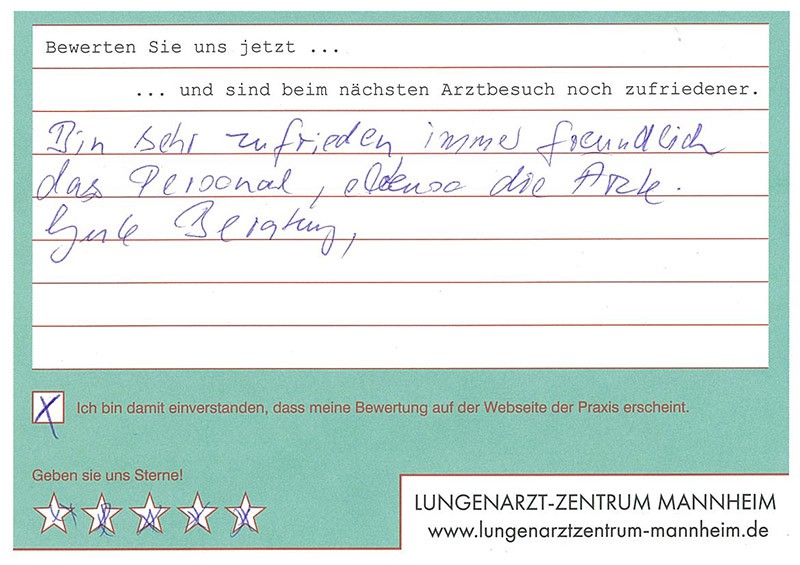 Bewerten Sie uns jetzt ...
... und sind beim nächsten Arztbesuch noch zufriedener.
Bin sehr zufrieden immer freundlich
das Personal, ebenso die Ärzte.
Gute Beratung,
X Ich bin damit einverstanden, dass meine Bewertung auf der Webseite der Praxis erscheint.
Geben sie uns Sterne!
LUNGENARZT-ZENTRUM MANNHEIM
www.lungenarztzentrum-mannheim.de